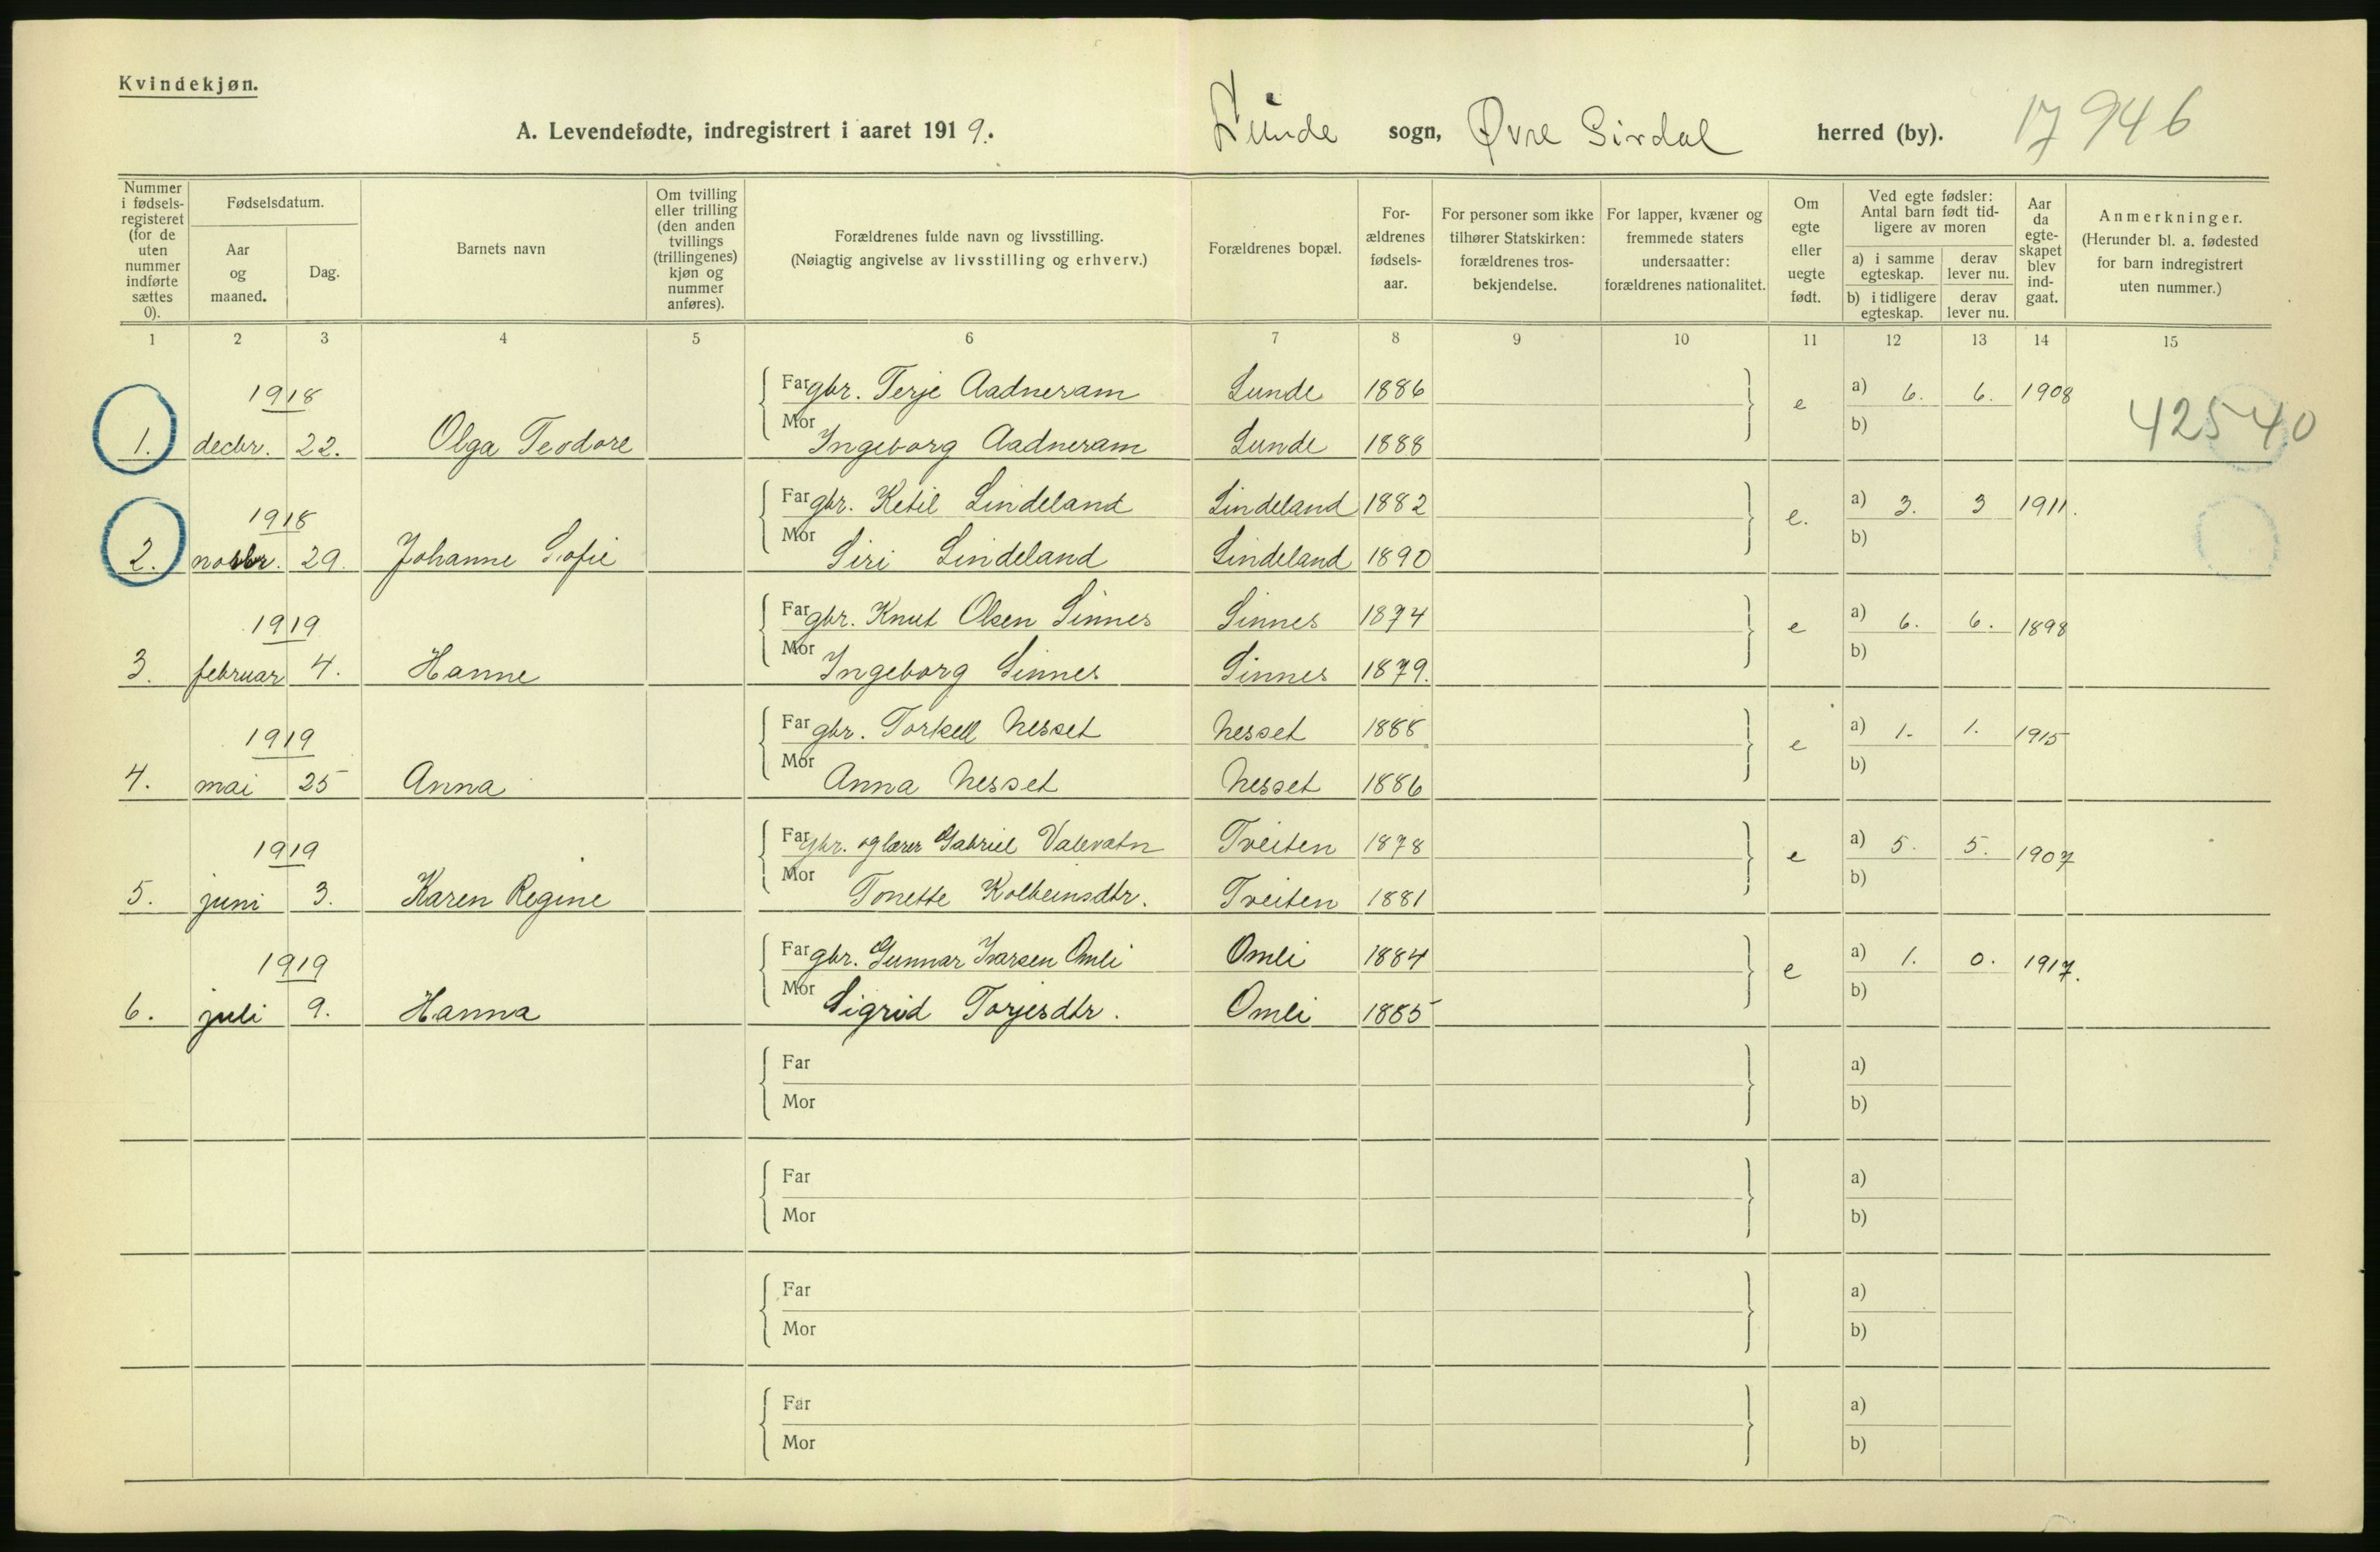 Kvindekjøn.
A. Levendefødte, indregistrert i aaret 1919. Lunde sogn, Øvre Sirdal herred (by). 17 946
Nummer i fødsels-registeret (for de uten nummer indførte sættes 0).
Fødselsdatum.
Aar og maaned.
Dag.
Barnets navn
Om tvilling eller trilling (den anden tvillings (trillingenes) kjøn og nummer anføres).
Forældrenes fulde navn og livsstilling.
(Nøiagtig angivelse av livsstilling og erhverv.)
Forældrenes bopæl.
For-ældrenes fødsels-aar.
For personer som ikke tilhører Statskirken: forældrenes tros-bekjendelse.
For lapper, kvæner og fremmede staters undersaatter: forældrenes nationalitet.
Om egte eller uegte født.
Ved egte fødsler: Antal barn født tid-ligere av moren
a) i samme egteskap.
derav lever nu.
b) i tidligere egteskap.
derav lever nu.
Aar da egte-skapet blev ind-gaat.
Anmerkninger.
(Herunder bl. a. fødested for barn indregistrert uten nummer.)
1 2 3 4 5 6 7 8 9 10 11 12 13 14 15
1918 Far gbr. Terje Aadneram Lunde 1886 e a) 6. 6. 1908
1. decbr. 22. Olga Teodore Mor Ingeborg Aadneram Lunde 1888 b) 42540
1918 Far gbr. Ketil Lindeland Lindeland 1882 e. a) 3. 3 1911.
2. novbr. 29. Johanne Sofie Mor Siri Lindeland Lindeland 1890 b)
1919 Far gbr. Knut Olsen Sinnes Sinnes 1874 e a) 6. 6. 1898
3. februar 4. Hanne Mor Ingeborg Sinnes Sinnes 1879. b)
1919 Far gbr. Torkell Nesset Nesset 1888 e a) 1. 1. 1915
4. mai 25 Anna Mor Anna Nesset Nesset 1886 b)
1919 Far gbr. og lærer Gabriel Valevatn Tveiten 1878 e a) 5. 5. 1907
5. juni 3. Karen Regine Mor Tonette Kolbeinsdtr. Tveiten 1881 b)
1919 Far gbr. Gunnar Ivarsen Omli Omli 1884 e a) 1. 0. 1917.
6. juli 9. Hanna Mor Sigrid Torjesdtr. Omli 1885 b)
Far a)
Mor b)
Far a)
Mor b)
Far a)
Mor b)
Far a)
Mor b)